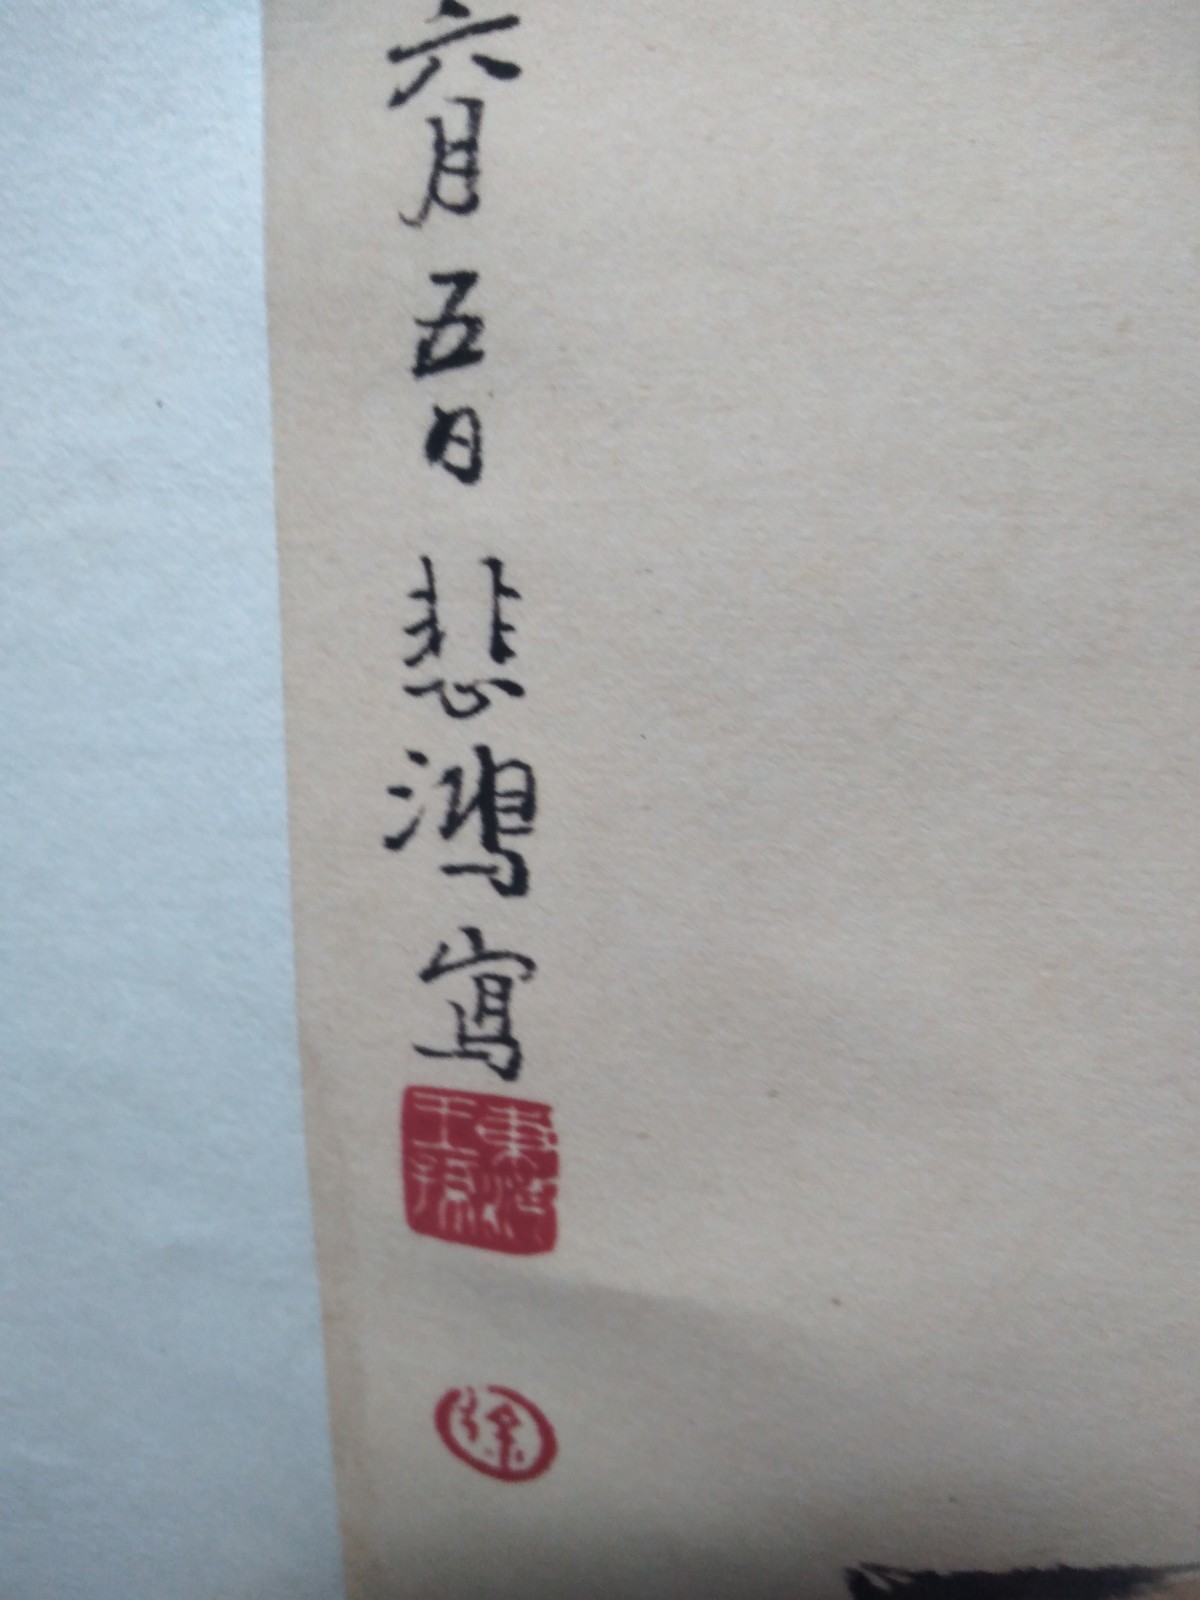 六月五日悲鴻寫
東海王孫
徐